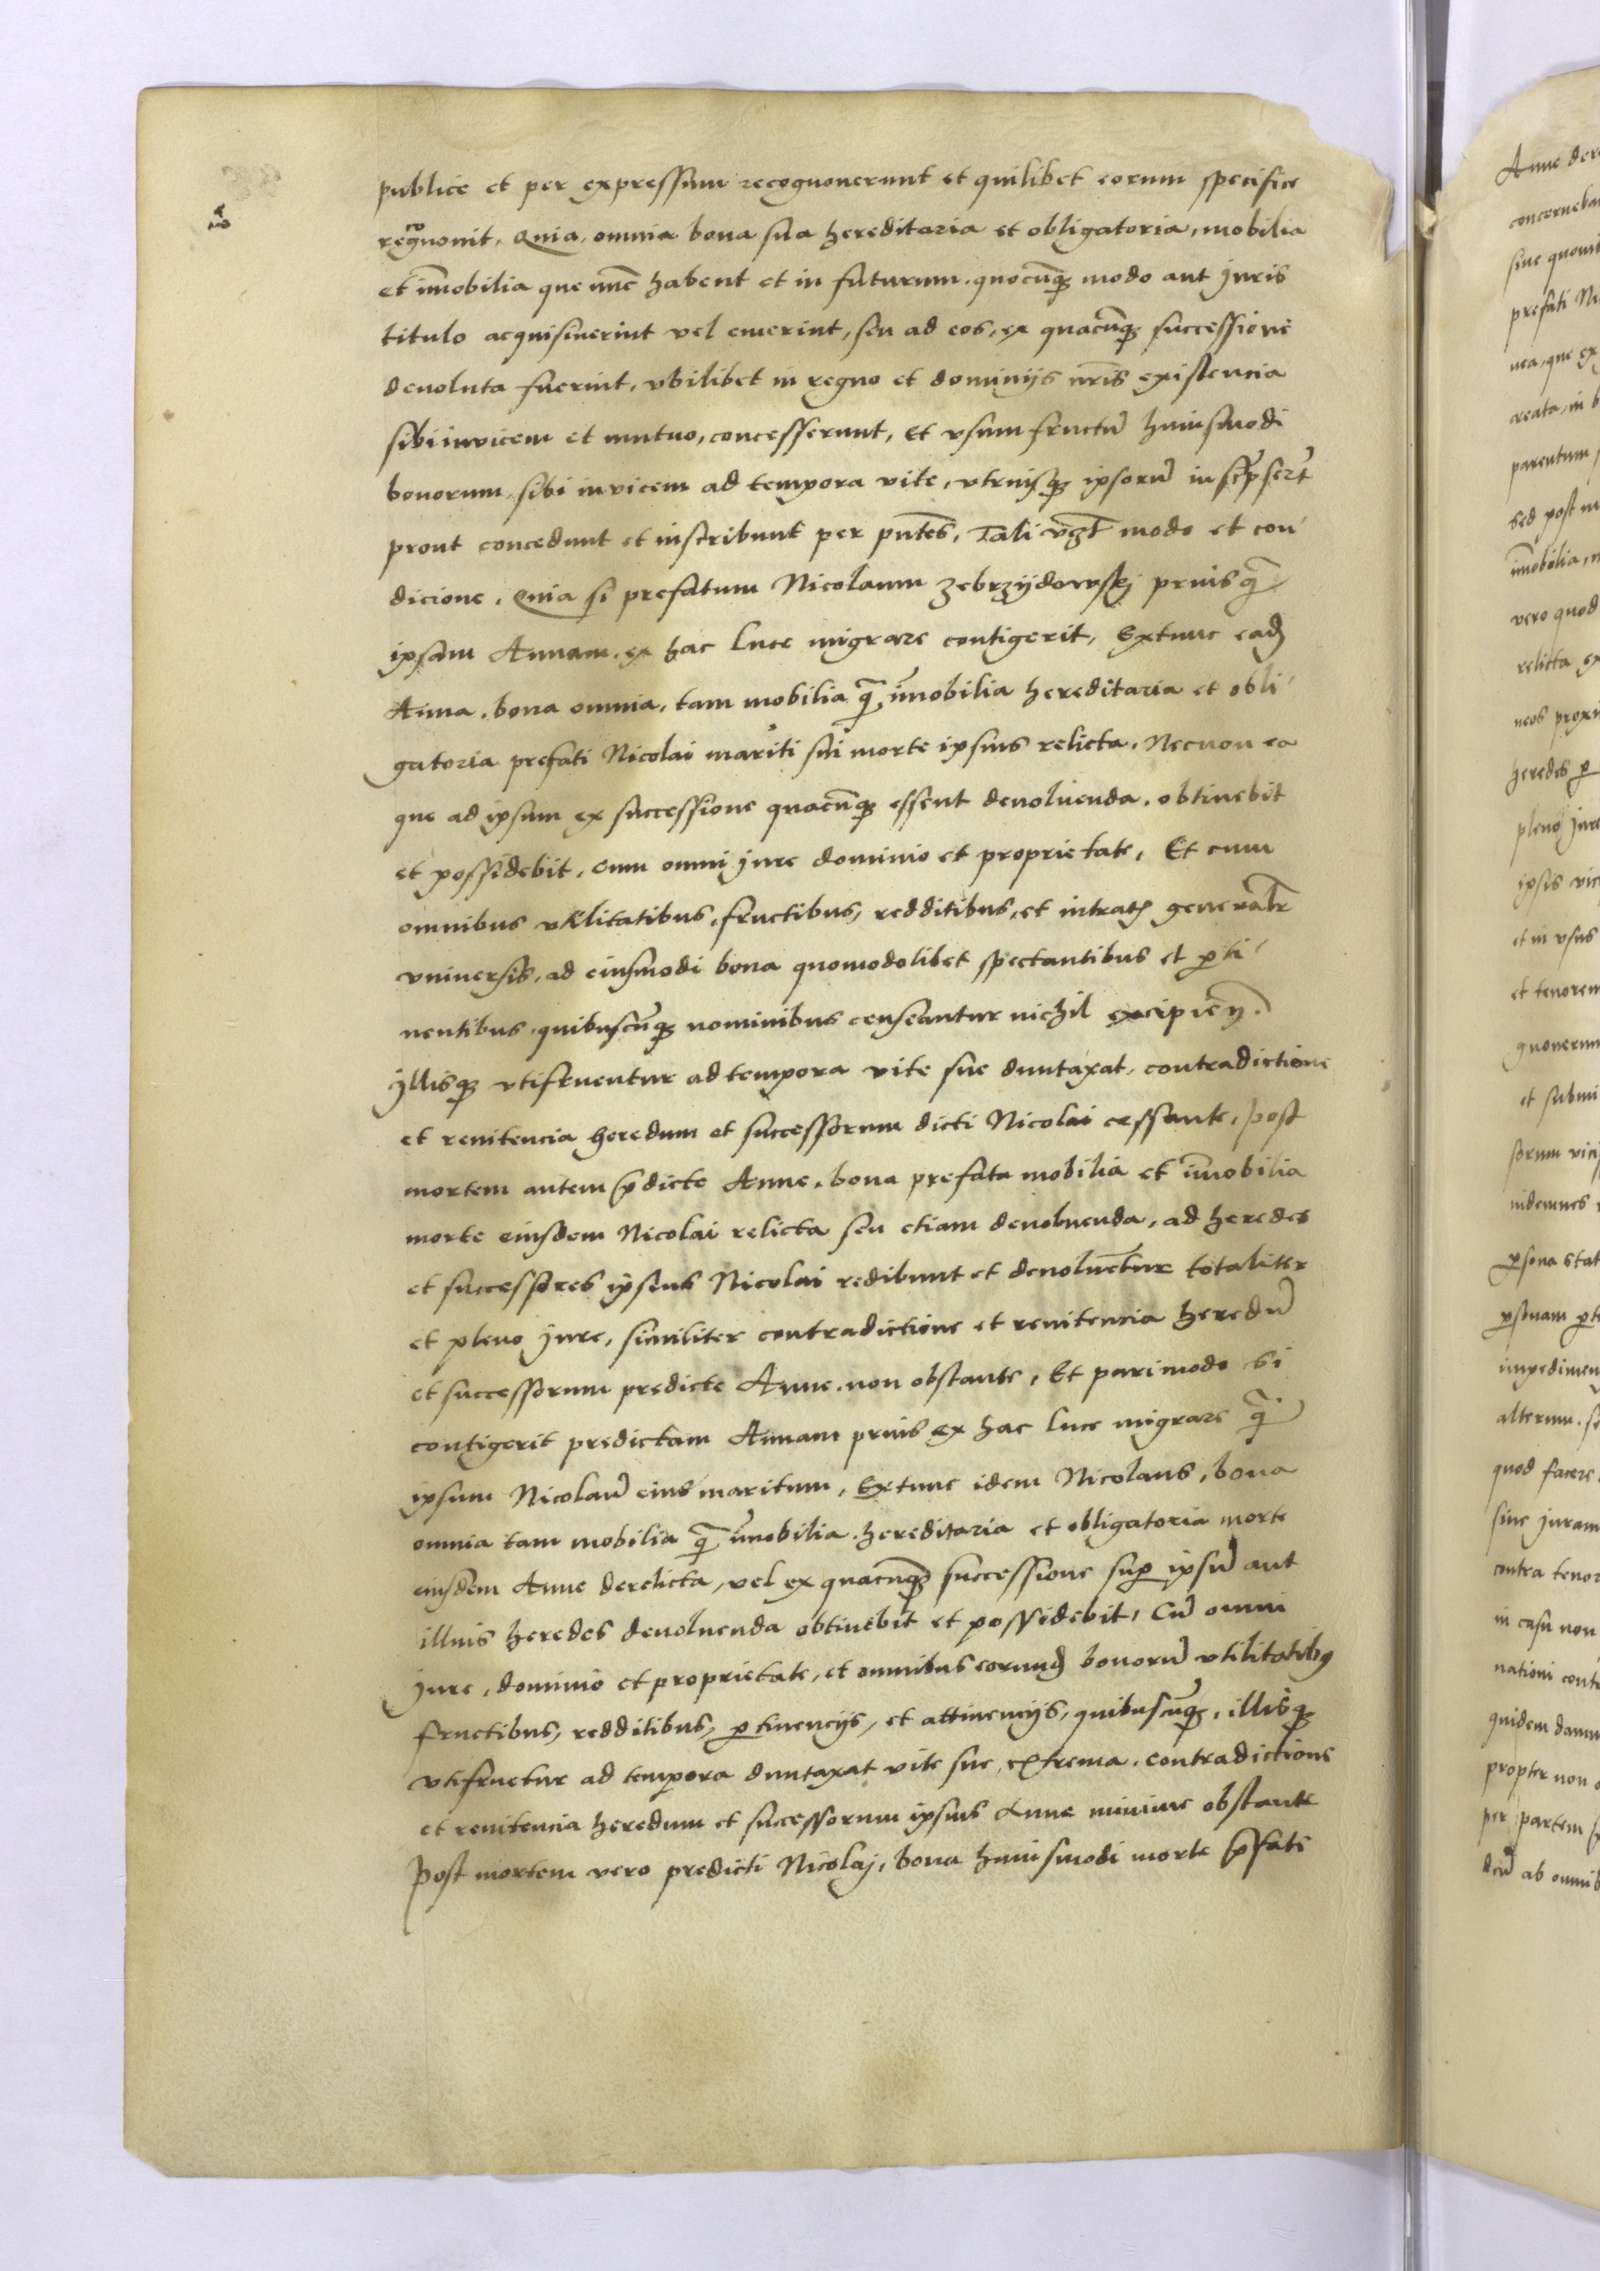 publice et per expressum recognouerunt et quilibet eorum specifice
recognouit. Quia omnia bona sua hereditaria et obligatoria, mobilia
et im̄obilia que nūc habent et in futurum. quocūq; modo aut Juris
titulo acquisiuerint vel emerint, seu ad eos, ex quacūq; successione
deuoluta fuerint, vbilibet in regno et dominijs nr̄is existencia
sibi invicem et mutuo, concesserunt, et vsumfructū huiusmodi
bonorum, sibi invicem ad tempora vite, vtriusq; ipsorū inscr̄pserūt
prout concedunt et inscribunt per pn̄tes, Tali modo et con-
dicione. Quia si prefatum Nicolaum Zebrzijdowskj prius q̄
ipsam Annam. ex hac luce migrare contigerit, Extunc ead
Anna. bona omnia, tam mobilia q̄ im̄obilia hereditaria et obli-
gatoria prefati Nicolai mariti sui morte ipsius relicta. Necnon ea
que ad ipsum ex successione quacūq; essent deuoluenda. obtinebit
et possidebit. cum omni jure dominio et proprietate, Et cum
omnibus vtilitatibus, fructibus, redditibus, et intratis generalr̄
vniuersis, ad eiusmodi bona quomodolibet spectantibus et p̱ti-
nentibus. quibuscūq; nominibus censeantur nichil excipien̄.
Jllisq; vtifruentur ad tempora vite sue duntaxat. contradictione
et renitencia heredum et successorum dicti Nicolai cessante, post
mortem autem p̄dicte Anne. bona prefata mobilia et im̄obilia
morte eiusdem Nicolai relicta seu etiam deuoluenda, ad heredes
et successores ipsius Nicolai redibunt et deuoluētur totaliter
et pleno jure, similiter contradictione et renitencia heredū
et successorum predicte Anne. non obstante, Et pari modo si
contigerit predictam Annam prius ex hac luce migrare q̄
ipsum Nicolaū eius maritum, Extunc idem Nicolaus, bona
omnia tam mobilia q̄ im̄obilia. hereditaria et obligatoria morte
eiusdem Anne derelicta, vel ex quacūq; successione sup̱ ipsū aut
illius heredes deuoluenda obtinebit et possidebit, Cū omni
Jure, dominio et proprietate, et omnibus eorund bonorū vtilitatib9
fructibus, redditibus, p̱tinencijs, et attinencijs, quibuscūq;, illisq;
vtifruetur ad tempora duntaxat vite sue extrema. contradictione
et renitencia heredum et successorum ipsius Anne minime obstante
Post mortem vero predicti Nicolaj, bona huiusmodi morte p̄fate